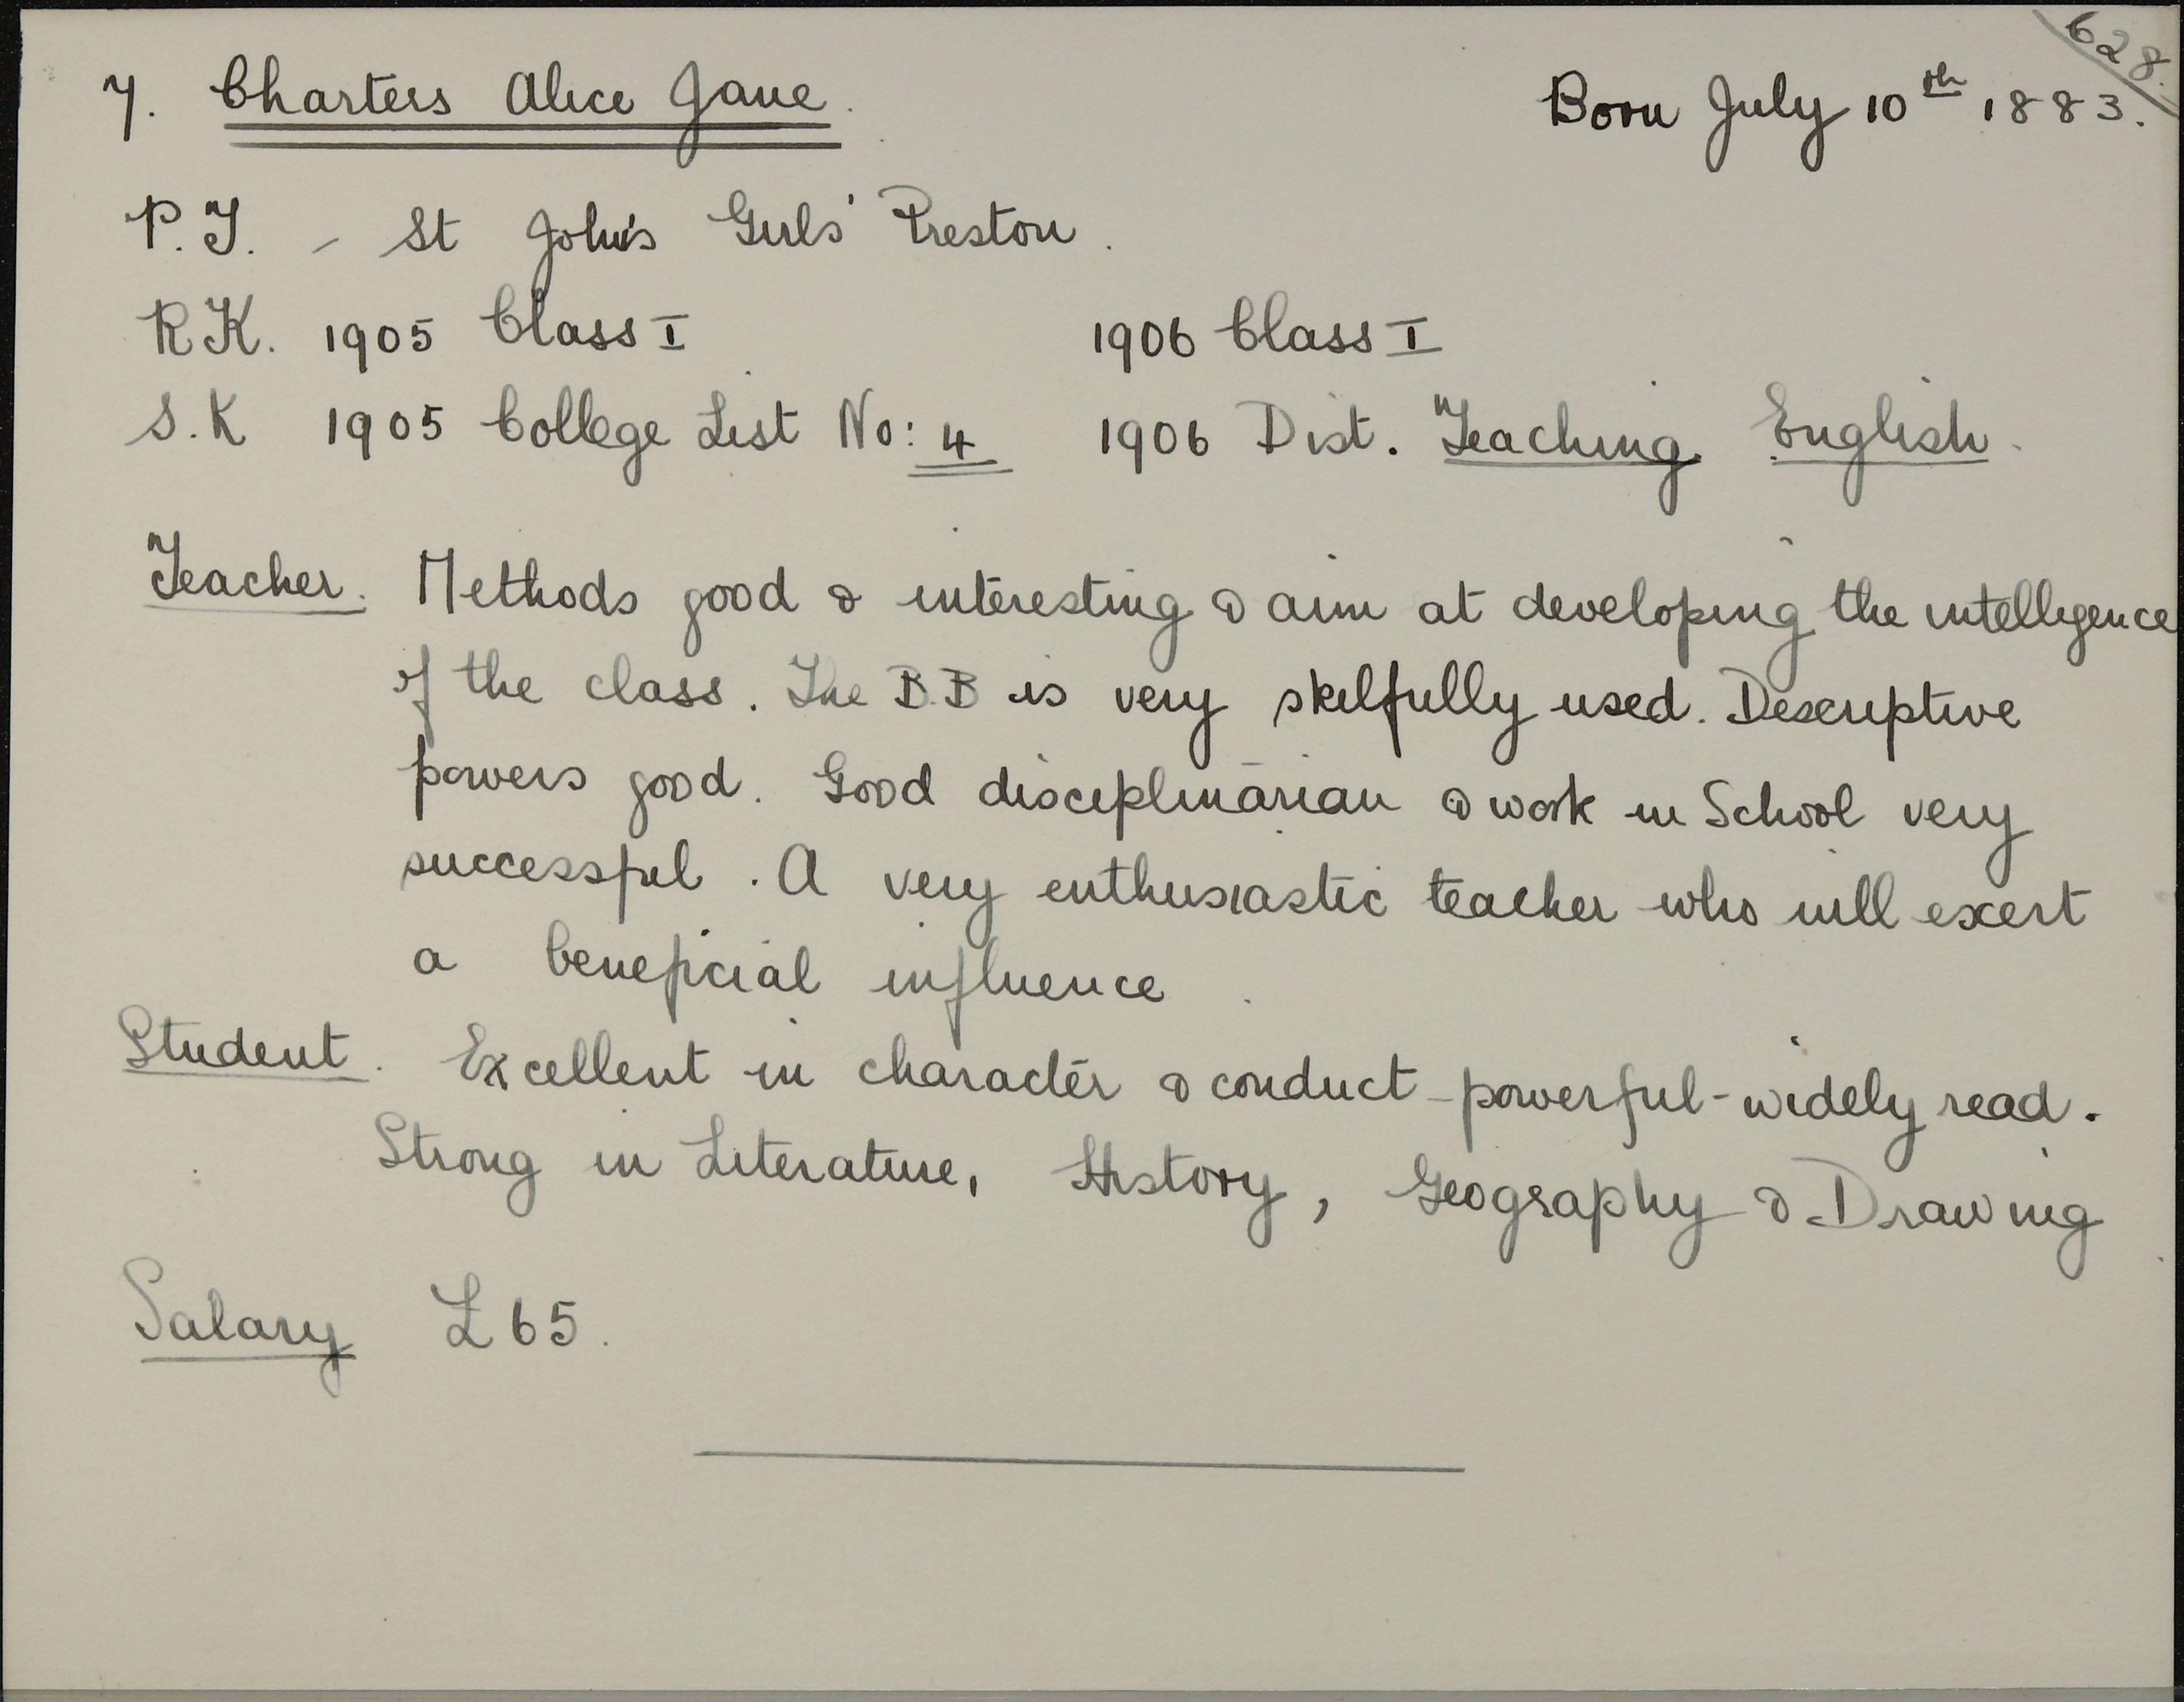 628.
7. Charters Alice Jane. Born July 10th 1883.
P.T. - St John's Girls' Preston.
R.K. 1905 Class I 1906 Class I
S.K 1905 College List No: 4 1906 Dist. Teaching English.
Teacher. Methods good & interesting & aim at developing the intelligence
of the class. The B.B is very skilfully used. Descriptive
powers good. Good disciplinarian & work in School very
successful. A very enthusiastic teacher who will exert
a beneficial influence.
Student. Excellent in character & conduct - powerful - widely read.
Strong in Literature, History, Geography & Drawing
Salary £65.